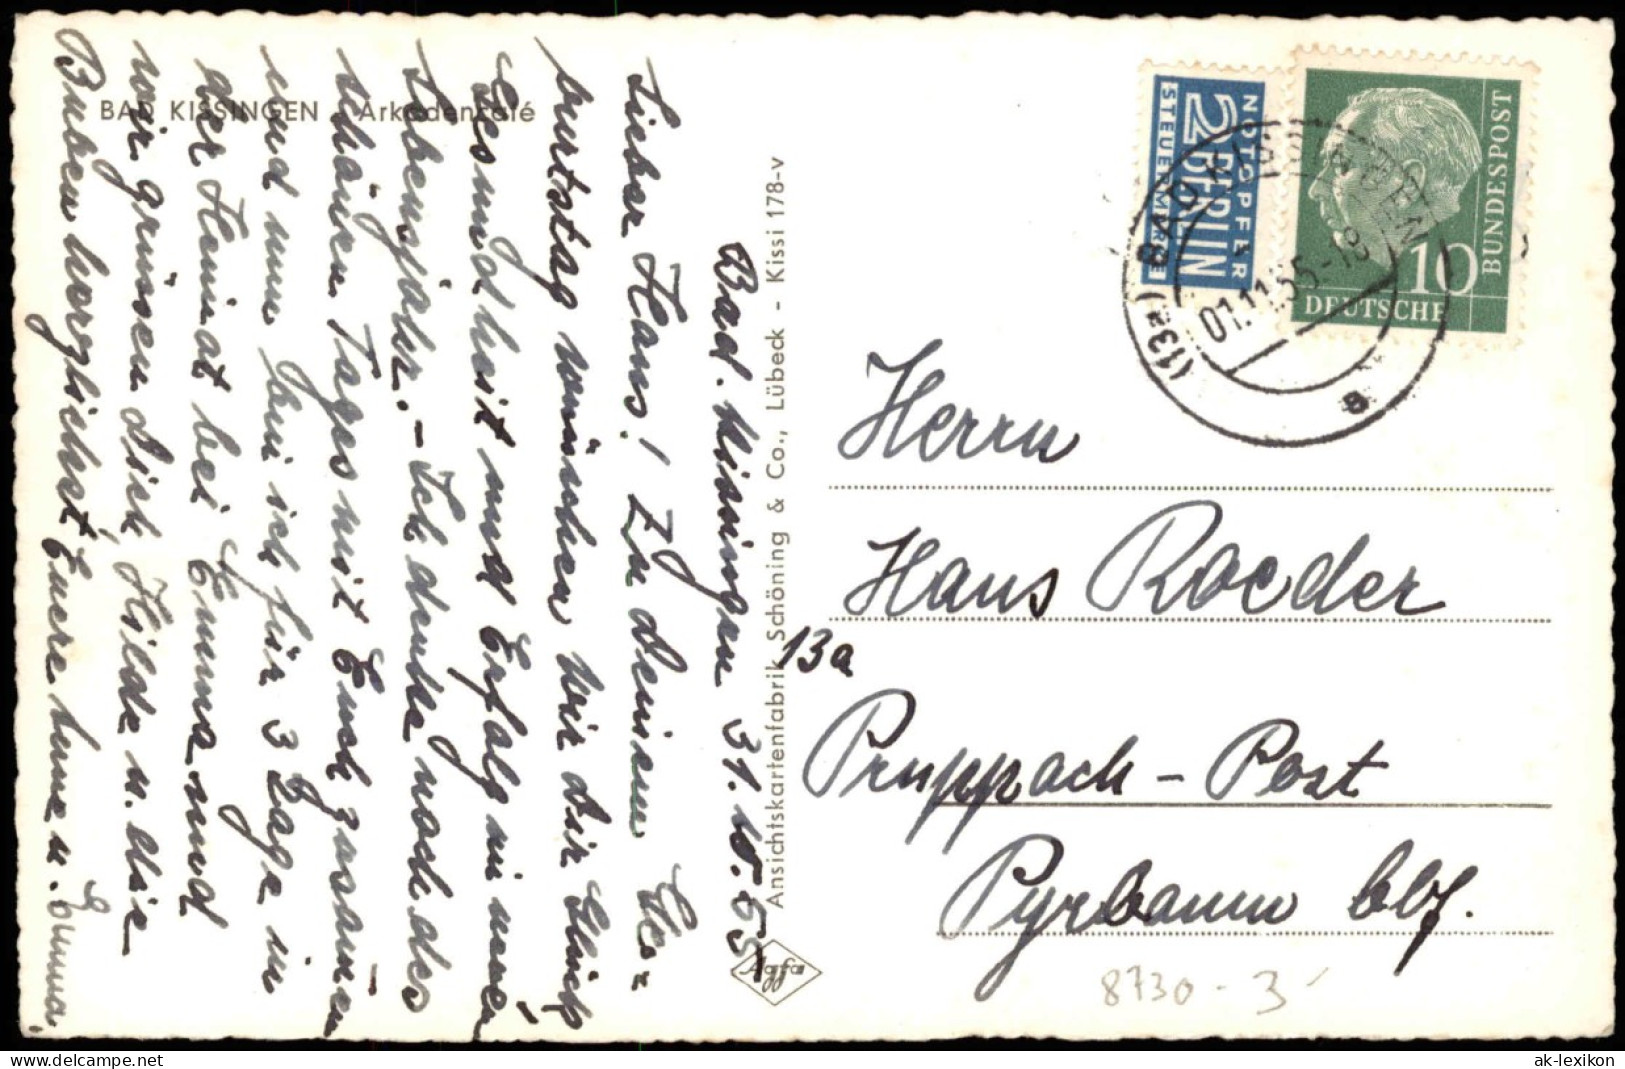 BAD KISSINGEN - Arkadencafé
Bad. Kissingen 31.10.55
Lieber Hans! Zu Deinem Ge=
burtstag wünschen wir Dir Glück
Gesundheit und Erfolg im neuen
Lebensjahr. - Ich denke noch des
schönen Tages mit Euch zusammen
und nun bin ich für 3 Tage in
der Heimat bei Emma und
wir grüssen Dich, Hilde u. die
Buben herzlichst, Euere u. Emma.
Ansichtskartenfabrik Schöning & Co., Lübeck - Kissi 178-v
Agfa
NOTOPFER
2 BERLIN
STEUERMARKE
DEUTSCHE
BUNDESPOST
10
(13a) BAD KISSINGEN
01.11.55-18
a
Herrn
Hans Roeder
13a
Pruppach - Post
Pyrbaum Opf.
8730 - 3
ak-lexikon.com